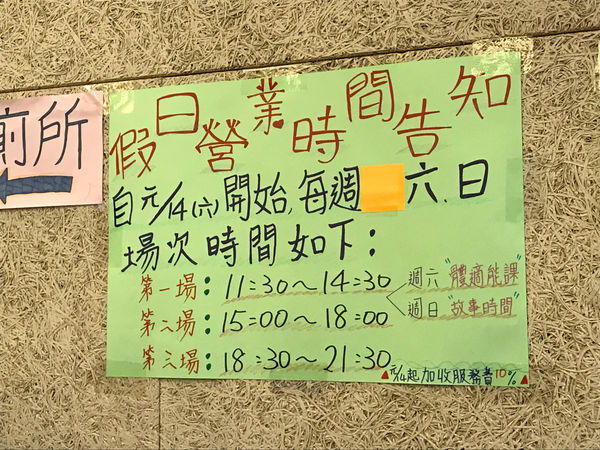 廁所
假日營業時間告知
自元/14(六)開始,每週 六.日
場次時間如下:
第一場:11:30~14:30
週六"體適能課"
週日"故事時間"
第二場:15:00~18:00
第三場:18:30~21:30
▲元/14起加收服務費10%▲